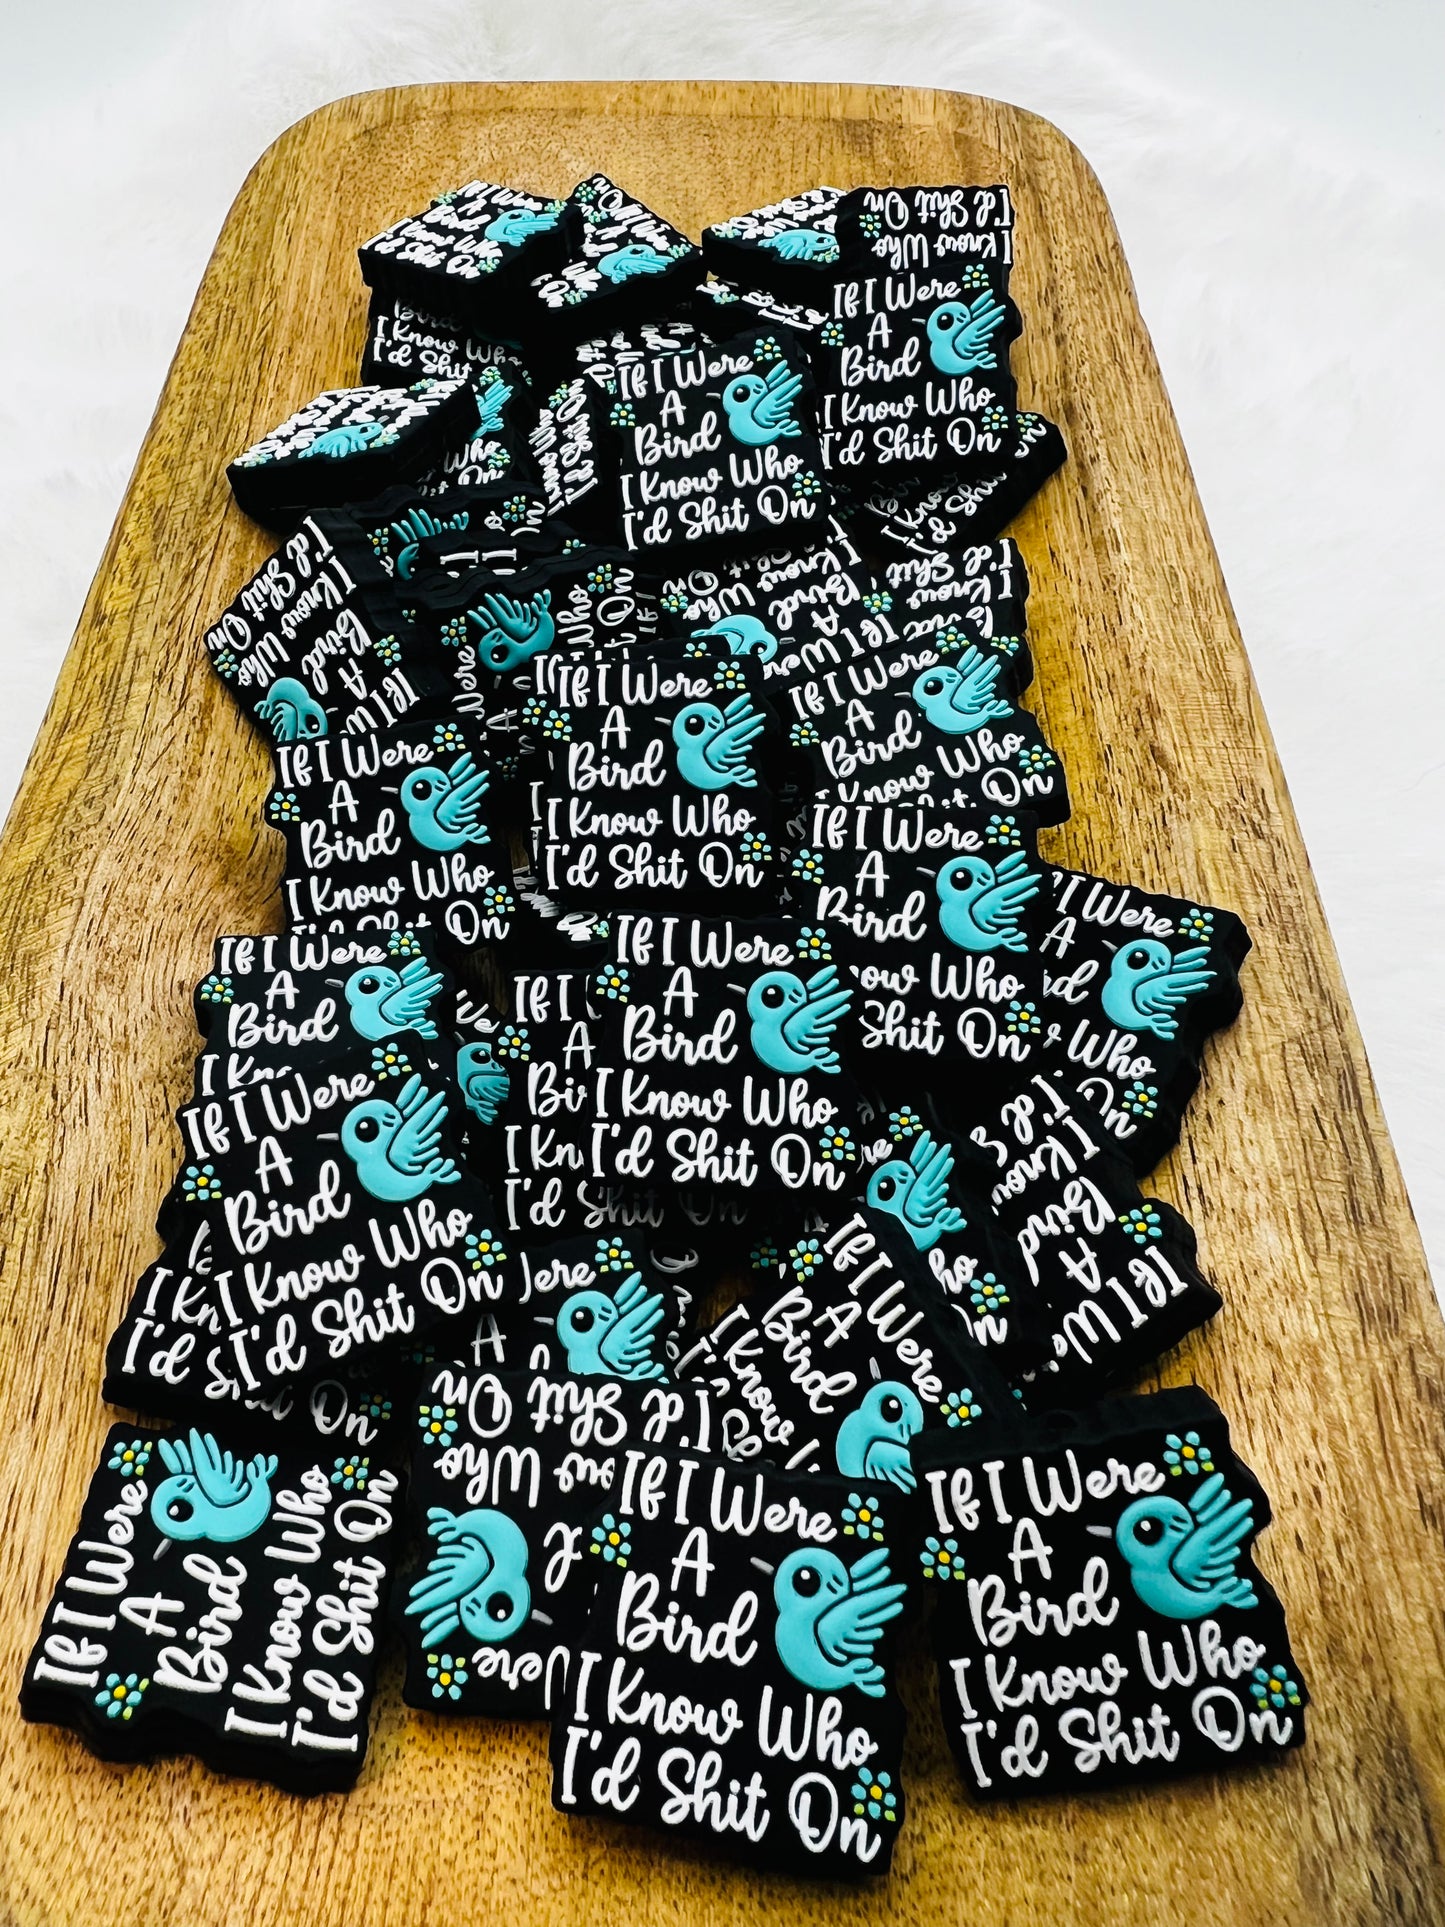 If I Were
A
Bird
I Know Who
I'd Shit On